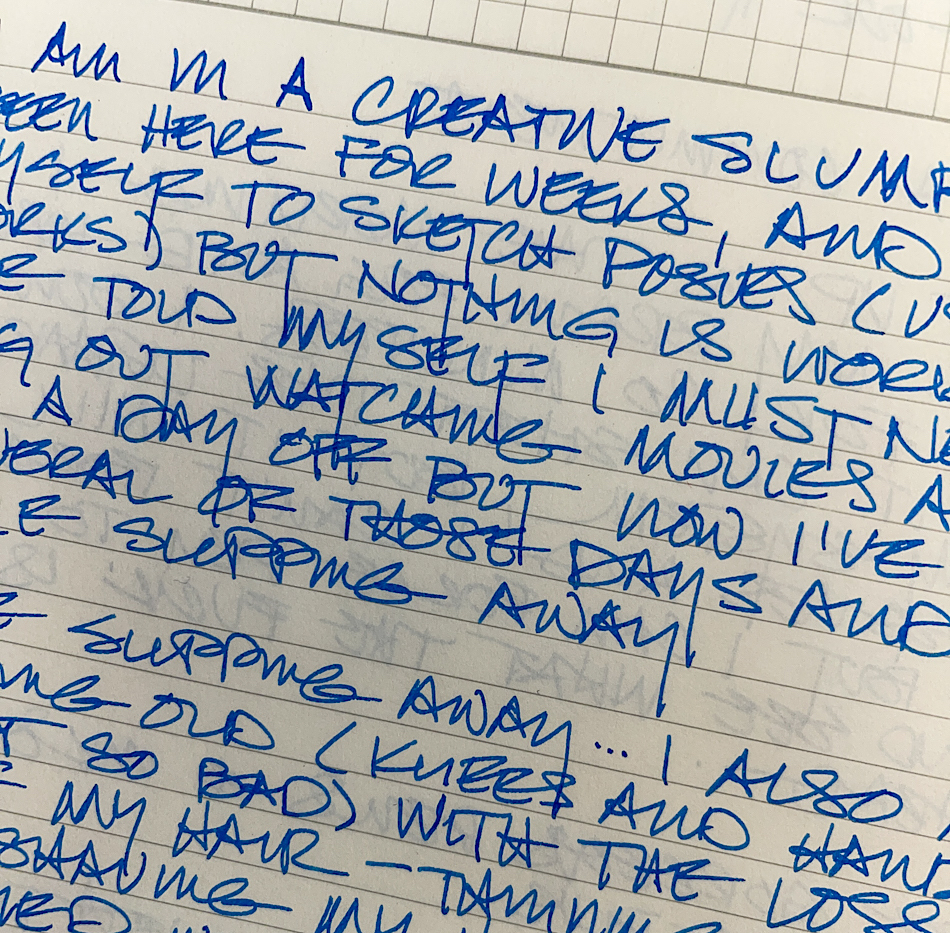 AM IN A CREATIVE SLUMP
BEEN HERE FOR WEEKS, AND
MYSELF TO SKETCH POSIES (US
ORKS) BUT NOTHING IS WORK
E TOLD MYSELF I MUST NE
G OUT WATCHING MOVIES A
A DAY OFF BUT NOW I'VE
VERAL OF THOSE DAYS AND
E SLIPPING AWAY
E SLIPPING AWAY... I ALSO
ING OLD (KNEES AND HAND
T SO BAD) WITH THE LOSS
F MY HAIR - THINNING
SHAVING MY